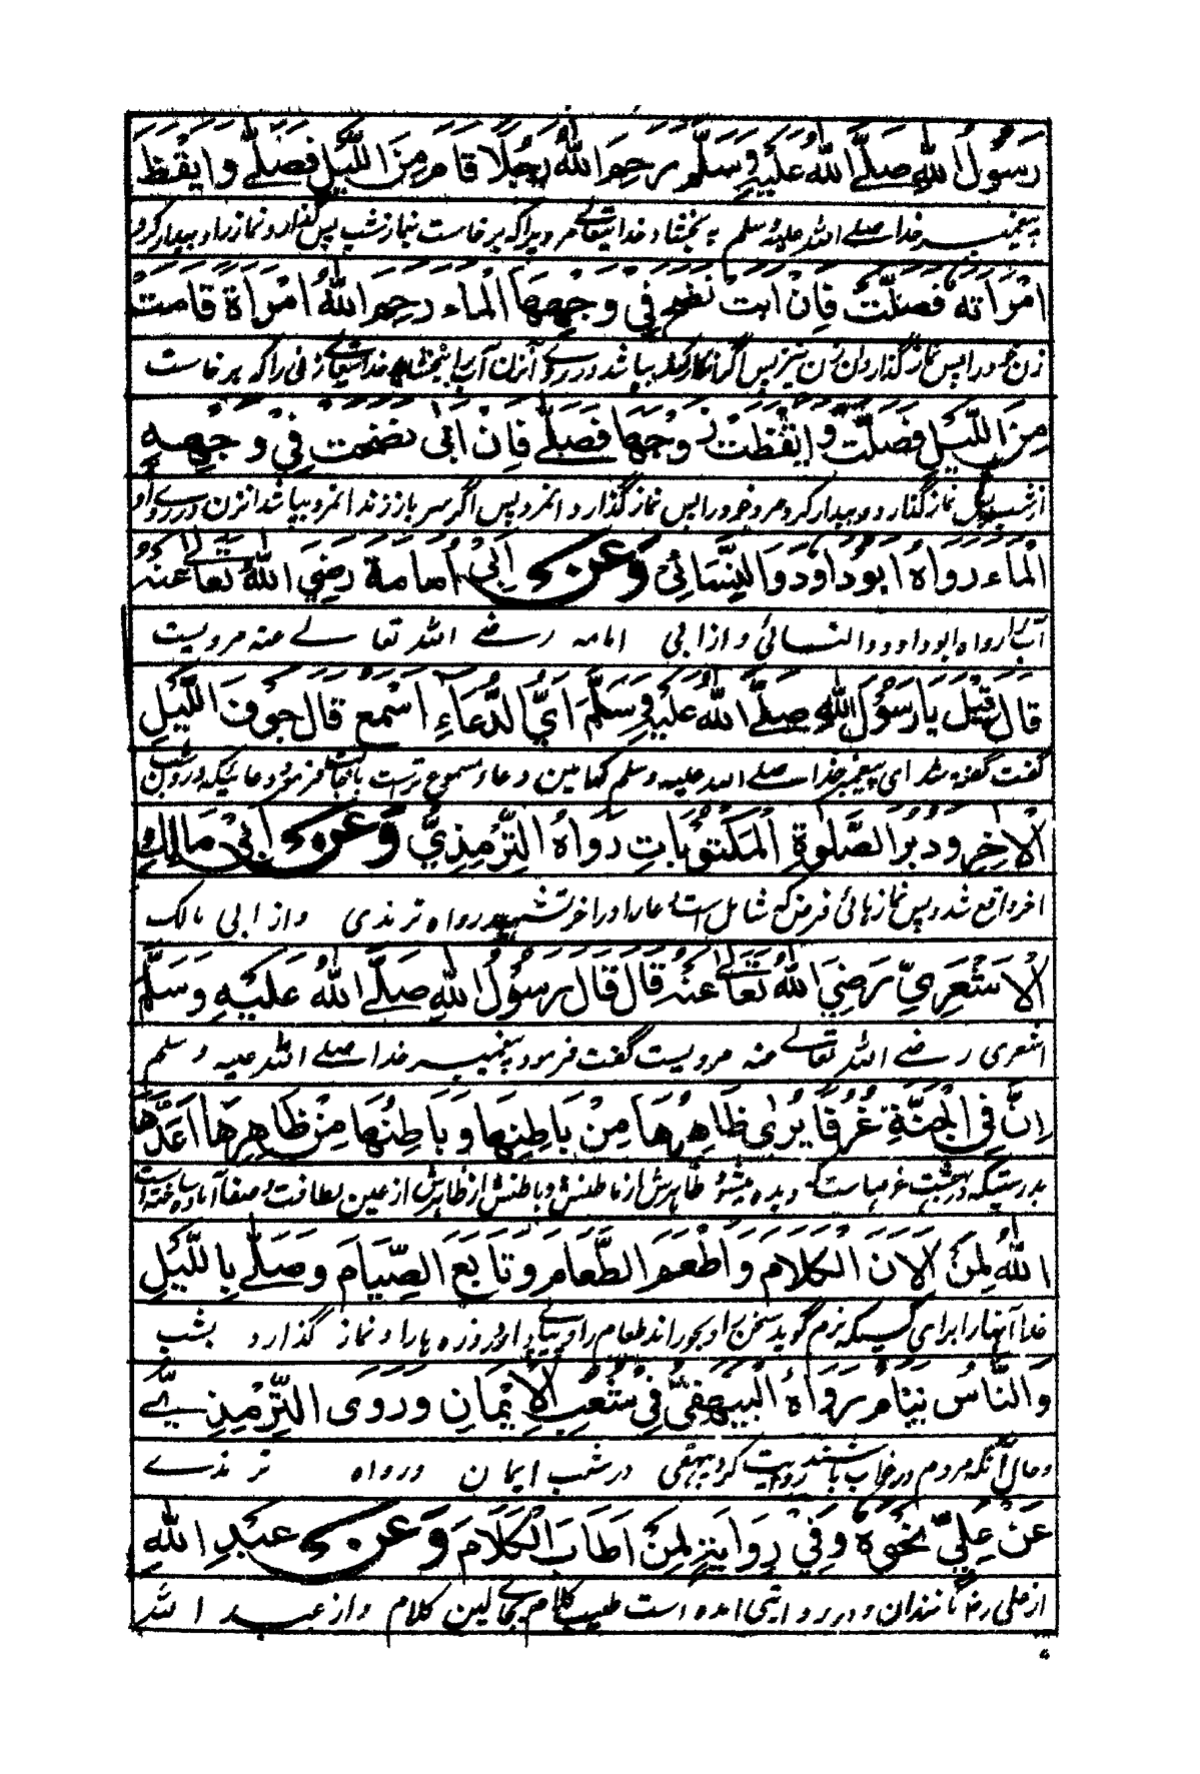 رَسُوْلُ اللهِ صَلَّے اللهُ عَلَيْهِ وَسَلَّمَ رَحِمَ اللهُ رَجُلًا قَامَ مِنَ اللَّيْلِ فَصَلّٰے وَايْقَظَ
پیغمبر خدا صلے اللہ علیہ وسلم بہ بخشاد خدا یتعالے مردیرا کہ برخاست بنماز شب پس گذارد نماز را و بیدار کرد
امْرَأَتَهٗ فَصَلَّتْ فَاِنْ ابَتْ نَضَحَ فِي وَجْهِهَا الْمَاءَ رَحِمَ اللهُ امْرَأَةً قَامَتْ
زن خود را پس نماز گذارد ان زن نیز پس اگر انکار کند بپاشد در روے آنزن آب را بخشاد خدا یتعالے زنی را کہ برخاست
مِنَ اللَّيْلِ فَصَلَّتْ وَايْقَظَتْ زَوْجَهَا فَصَلّٰے فَاِنْ اَبٰى نَضَحَتْ فِيْ وَجْهِهٖ
از شب پس نماز گذارد و بیدار کرد مرد خود را پس نماز گذارد انمرد پس اگر سر باز زند انمرد بپاشد انزن در روے او
الْمَاءَ رَوَاهُ ابُوْدَاوٗدَ وَالنَّسَائِيُّ وَعَنْ اَبِيْ اُمَامَةَ رَضِيَ اللهُ تَعَالٰے عَنْهُ
آب را رواہ ابوداود والنسائی و از ابی امامہ رضے اللہ تعالے عنہ مرویست
قَالَ قِيْلَ يَا رَسُوْلَ اللهِ صَلَّے اللهُ عَلَيْهِ وَسَلَّمَ اَيُّ الدُّعَاءِ اَسْمَعُ قَالَ جَوْفَ اللَّيْلِ
گفت گفتہ شد ای پیغمبر خدا صلے اللہ علیہ وسلم کدامین دعا مسموع ترست باجابت فرمود دعائیکہ درون شب
الْاٰخِرِ وَدُبُرَ الصَّلٰوةِ الْمَكْتُوْبَاتِ رَوَاهُ التِّرْمِذِيُّ وَعَنْ اَبِيْ مَالِكِ
اخر واقع شد و پس نمازهائی فرض کہ شامل است دعا را در اخر تشهد رواہ ترمذی و از ابی مالک
الْاَشْعَرِيِّ رَضِيَ اللهُ تَعَالٰے عَنْهُ قَالَ قَالَ رَسُوْلُ اللهِ صَلَّے اللهُ عَلَيْهِ وَسَلَّمَ
اشعری رضے اللہ تعالے عنہ مرویست گفت فرمود پیغمبر خدا صلے اللہ علیہ وسلم
اِنَّ فِي الْجَنَّةِ غُرَفًا يُرٰى ظَاهِرُهَا مِنْ بَاطِنِهَا وَبَاطِنُهَا مِنْ ظَاهِرِهَا اَعَدَّهَا
بدرستیکہ در بهشت غرفهاست کہ دیدہ میشود ظاهرش از باطنش و باطنش از ظاهرش از عین لطافت و صفا آمادہ ساختہ است
اللهُ لِمَنْ اَلَانَ الْكَلَامَ وَاَطْعَمَ الطَّعَامَ وَتَابَعَ الصِّيَامَ وَصَلّٰے بِاللَّيْلِ
خدا آنها را برای کسیکہ نرم گوید سخن را و بخوراند طعام را و پیاپے دارد روزہ ہا را و نماز گذارد بشب
وَالنَّاسُ نِيَامٌ رَوَاهُ الْبَيْهَقِيُّ فِيْ شُعَبِ الْاِيْمَانِ وَرَوَى التِّرْمِذِيُّ
وحال آنکہ مردم در خواب باشند روایت کرد بیهقی در شعب ایمان ورواہ ترمذے
عَنْ عَلِيٍّ نَحْوَهٗ وَفِيْ رِوَايَتِهٖ لِمَنْ اَطَابَ الْكَلَامَ وَعَنْ عَبْدِ اللهِ
از علی رض مانندان و در روایتی امدہ است طیب کلام بجاے لین کلام و از عبد اللہ